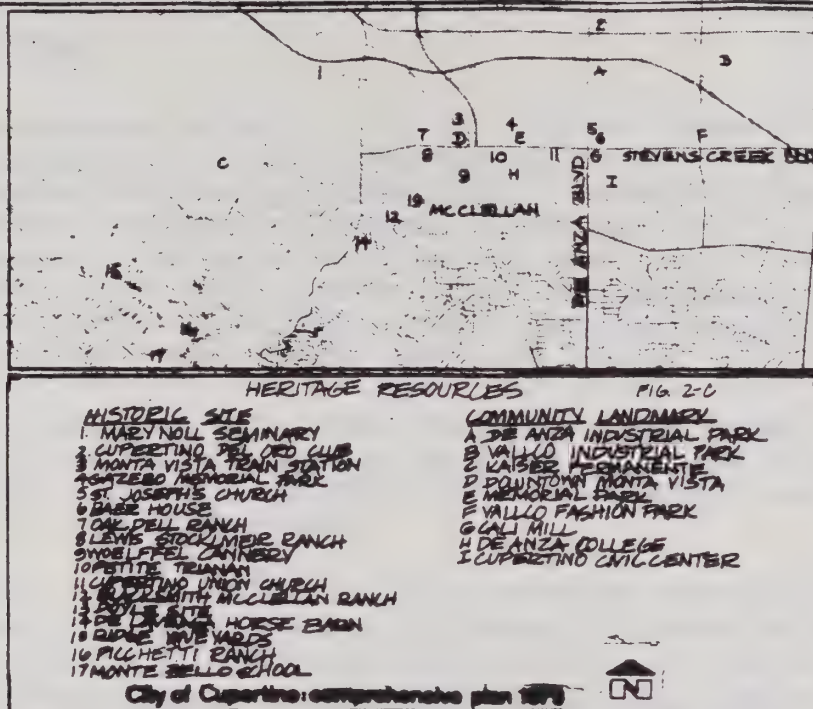 2
B
1
A
3
4
5
7
D
E
6
F
8
10
11
G
STEVENS CREEK
C
9
H
I
DE ANZA BLVD
12
MCCLELLAN
17
HERITAGE RESOURCES
FIG. 2-C
HISTORIC SITE
1. MARYNOLL SEMINARY
2 CUPERTINO DEL ORO CLUB
3 MONTA VISTA TRAIN STATION
4 GAZEBO MEMORIAL PARK
5 ST. JOSEPH'S CHURCH
6 BAER HOUSE
7 OAK DELL RANCH
8 LEWIS STOCKLMEIR RANCH
9 WOELFFEL CANNERY
10 PETITE TRIANAN
11 CUPERTINO UNION CHURCH
12 BLACKSMITH MCCLELLAN RANCH
13 DOYLE SITE
14 HORSE BARN
15 RIDGE VINEYARDS
16 PICCHETTI RANCH
17 MONTE BELLO SCHOOL
COMMUNITY LANDMARK
A DE ANZA INDUSTRIAL PARK
B VALLCO INDUSTRIAL PARK
C KAISER PERMANENTE
D DOWNTOWN MONTA VISTA
E MEMORIAL PARK
F VALLCO FASHION PARK
G CALI MILL
H DE ANZA COLLEGE
I CUPERTINO CIVIC CENTER
City of Cupertino: comprehensive plan
N